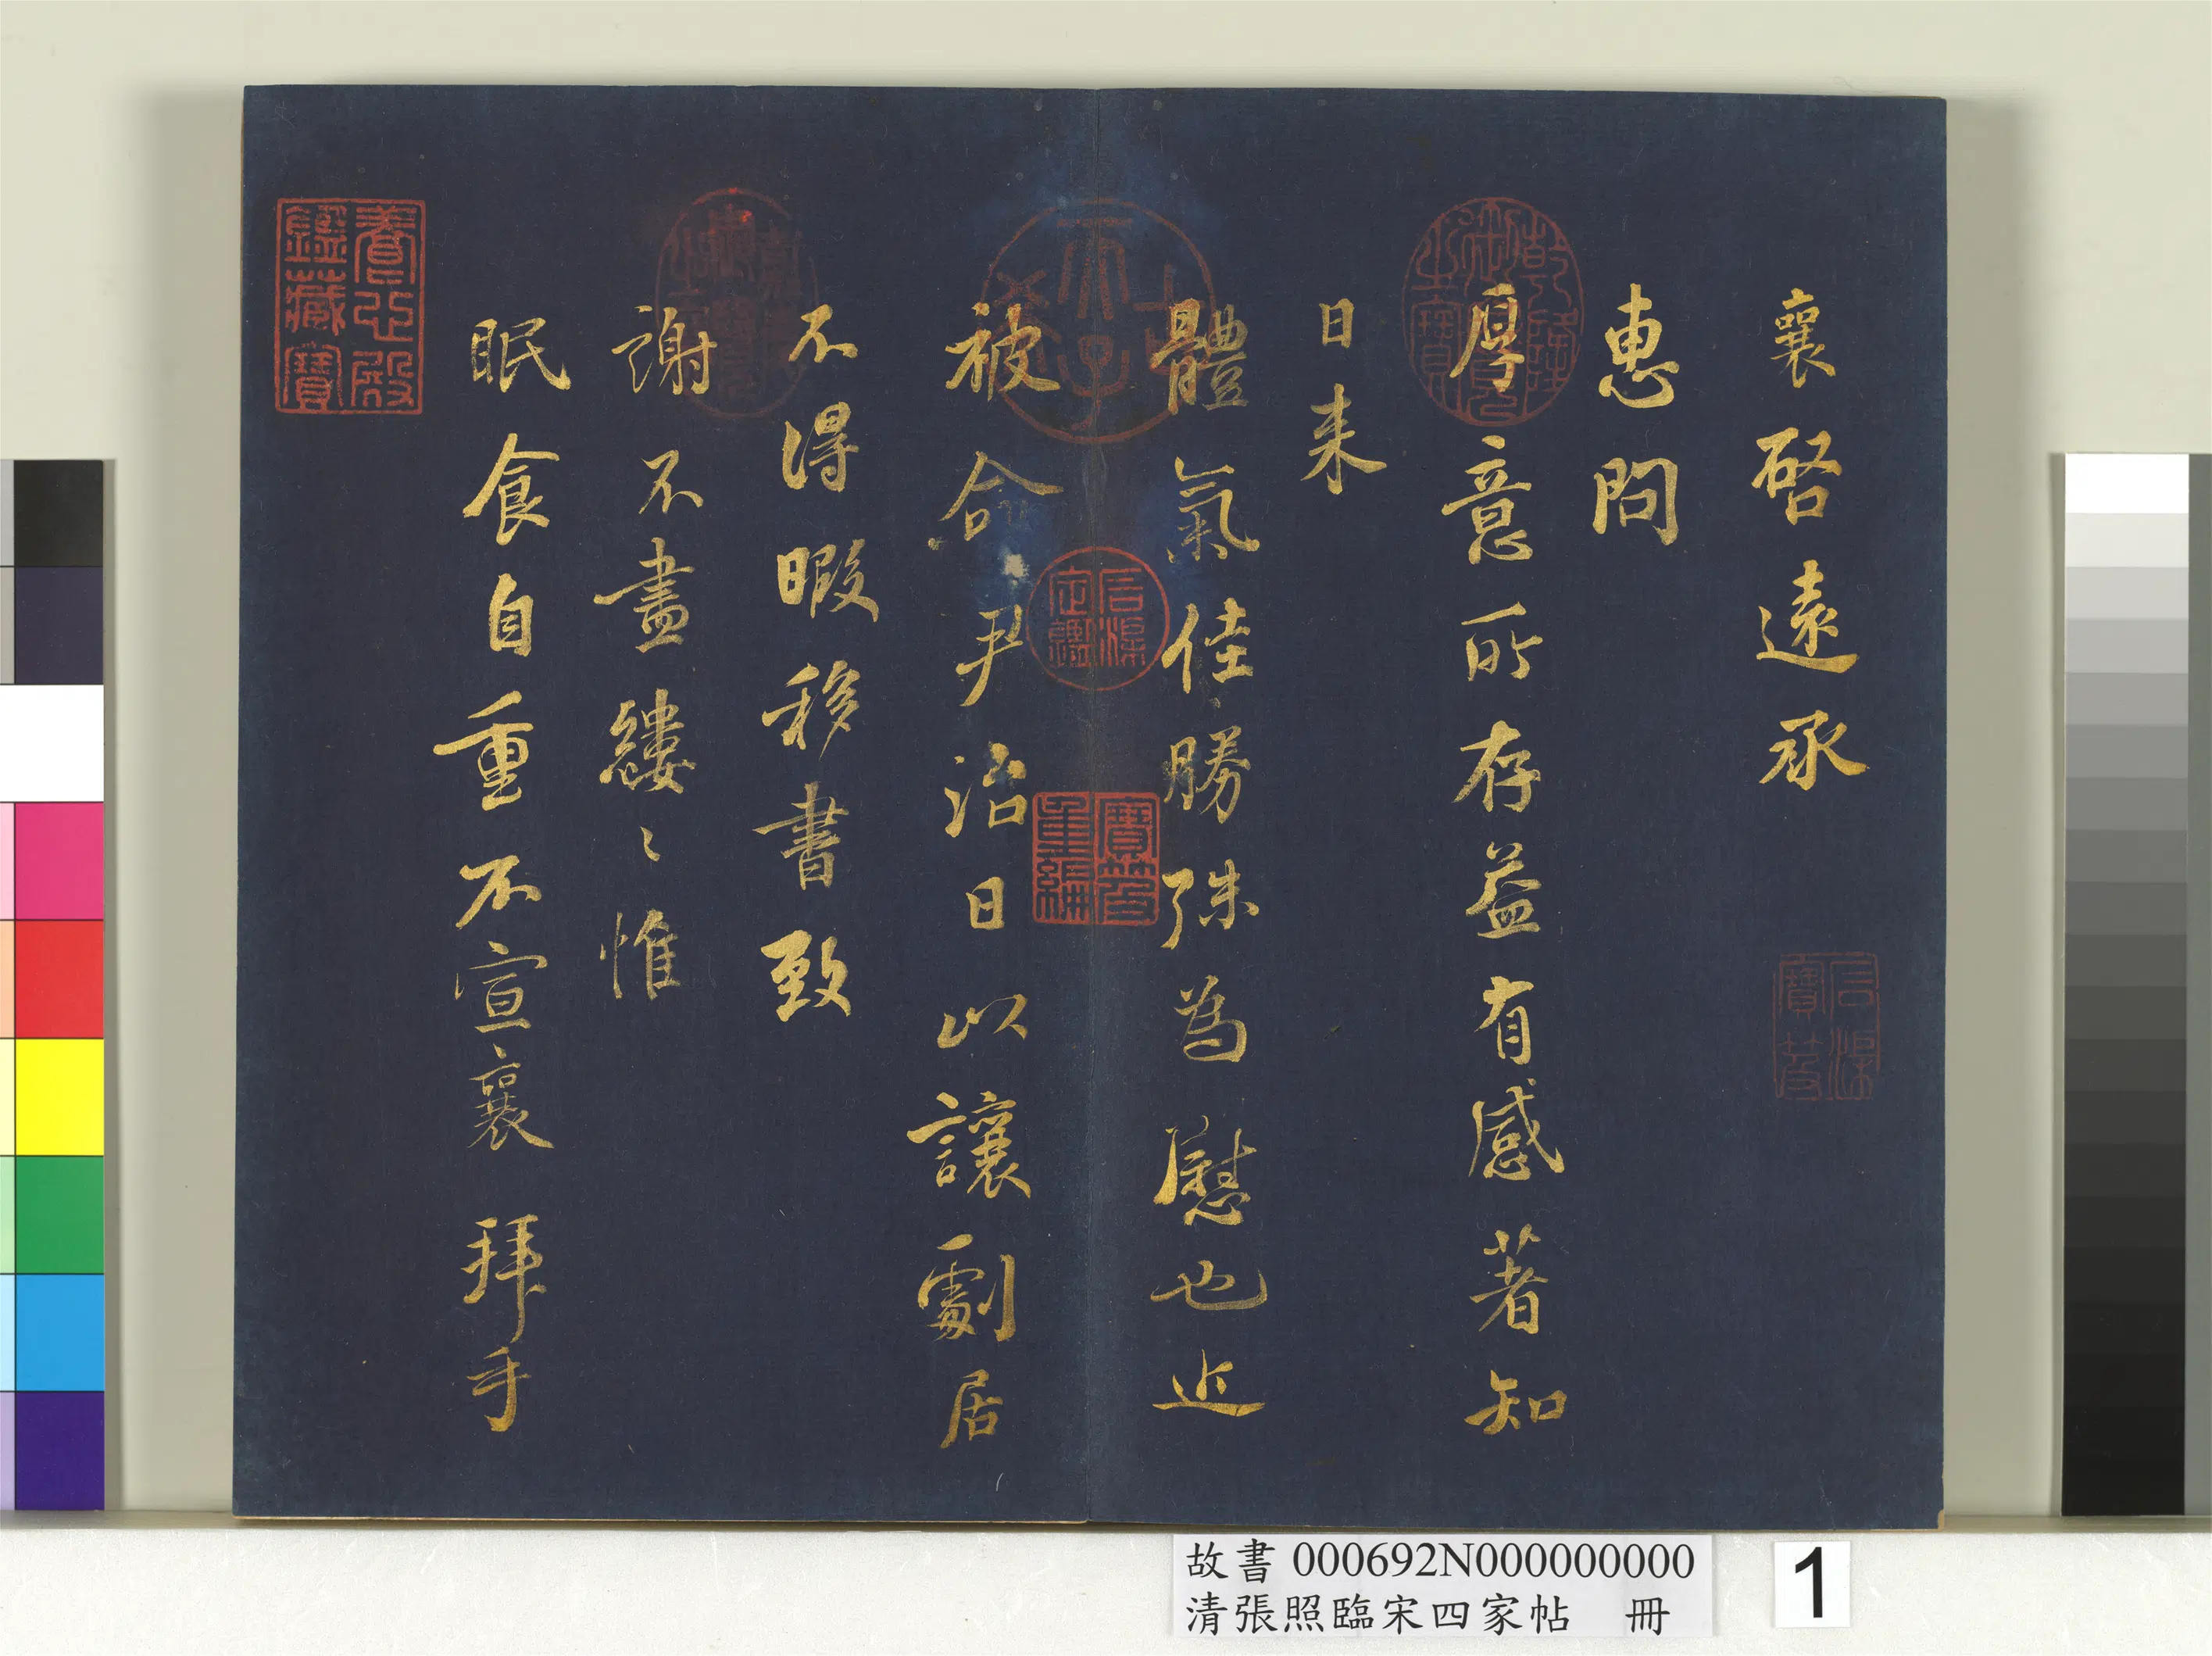 襄啓遠承
惠問
厚意所存益有感著知
日来
體氣佳勝殊為慰也近
被命尹治日以讓劇居
不得暇移書致
謝不盡縷〻惟
眠食自重不宣襄拜手
乾隆御覽之寶
石渠寶笈
石渠定鑑
寶笈重編
養心殿鑑藏寶
故書 000692N000000000
清張照臨宋四家帖 冊
1